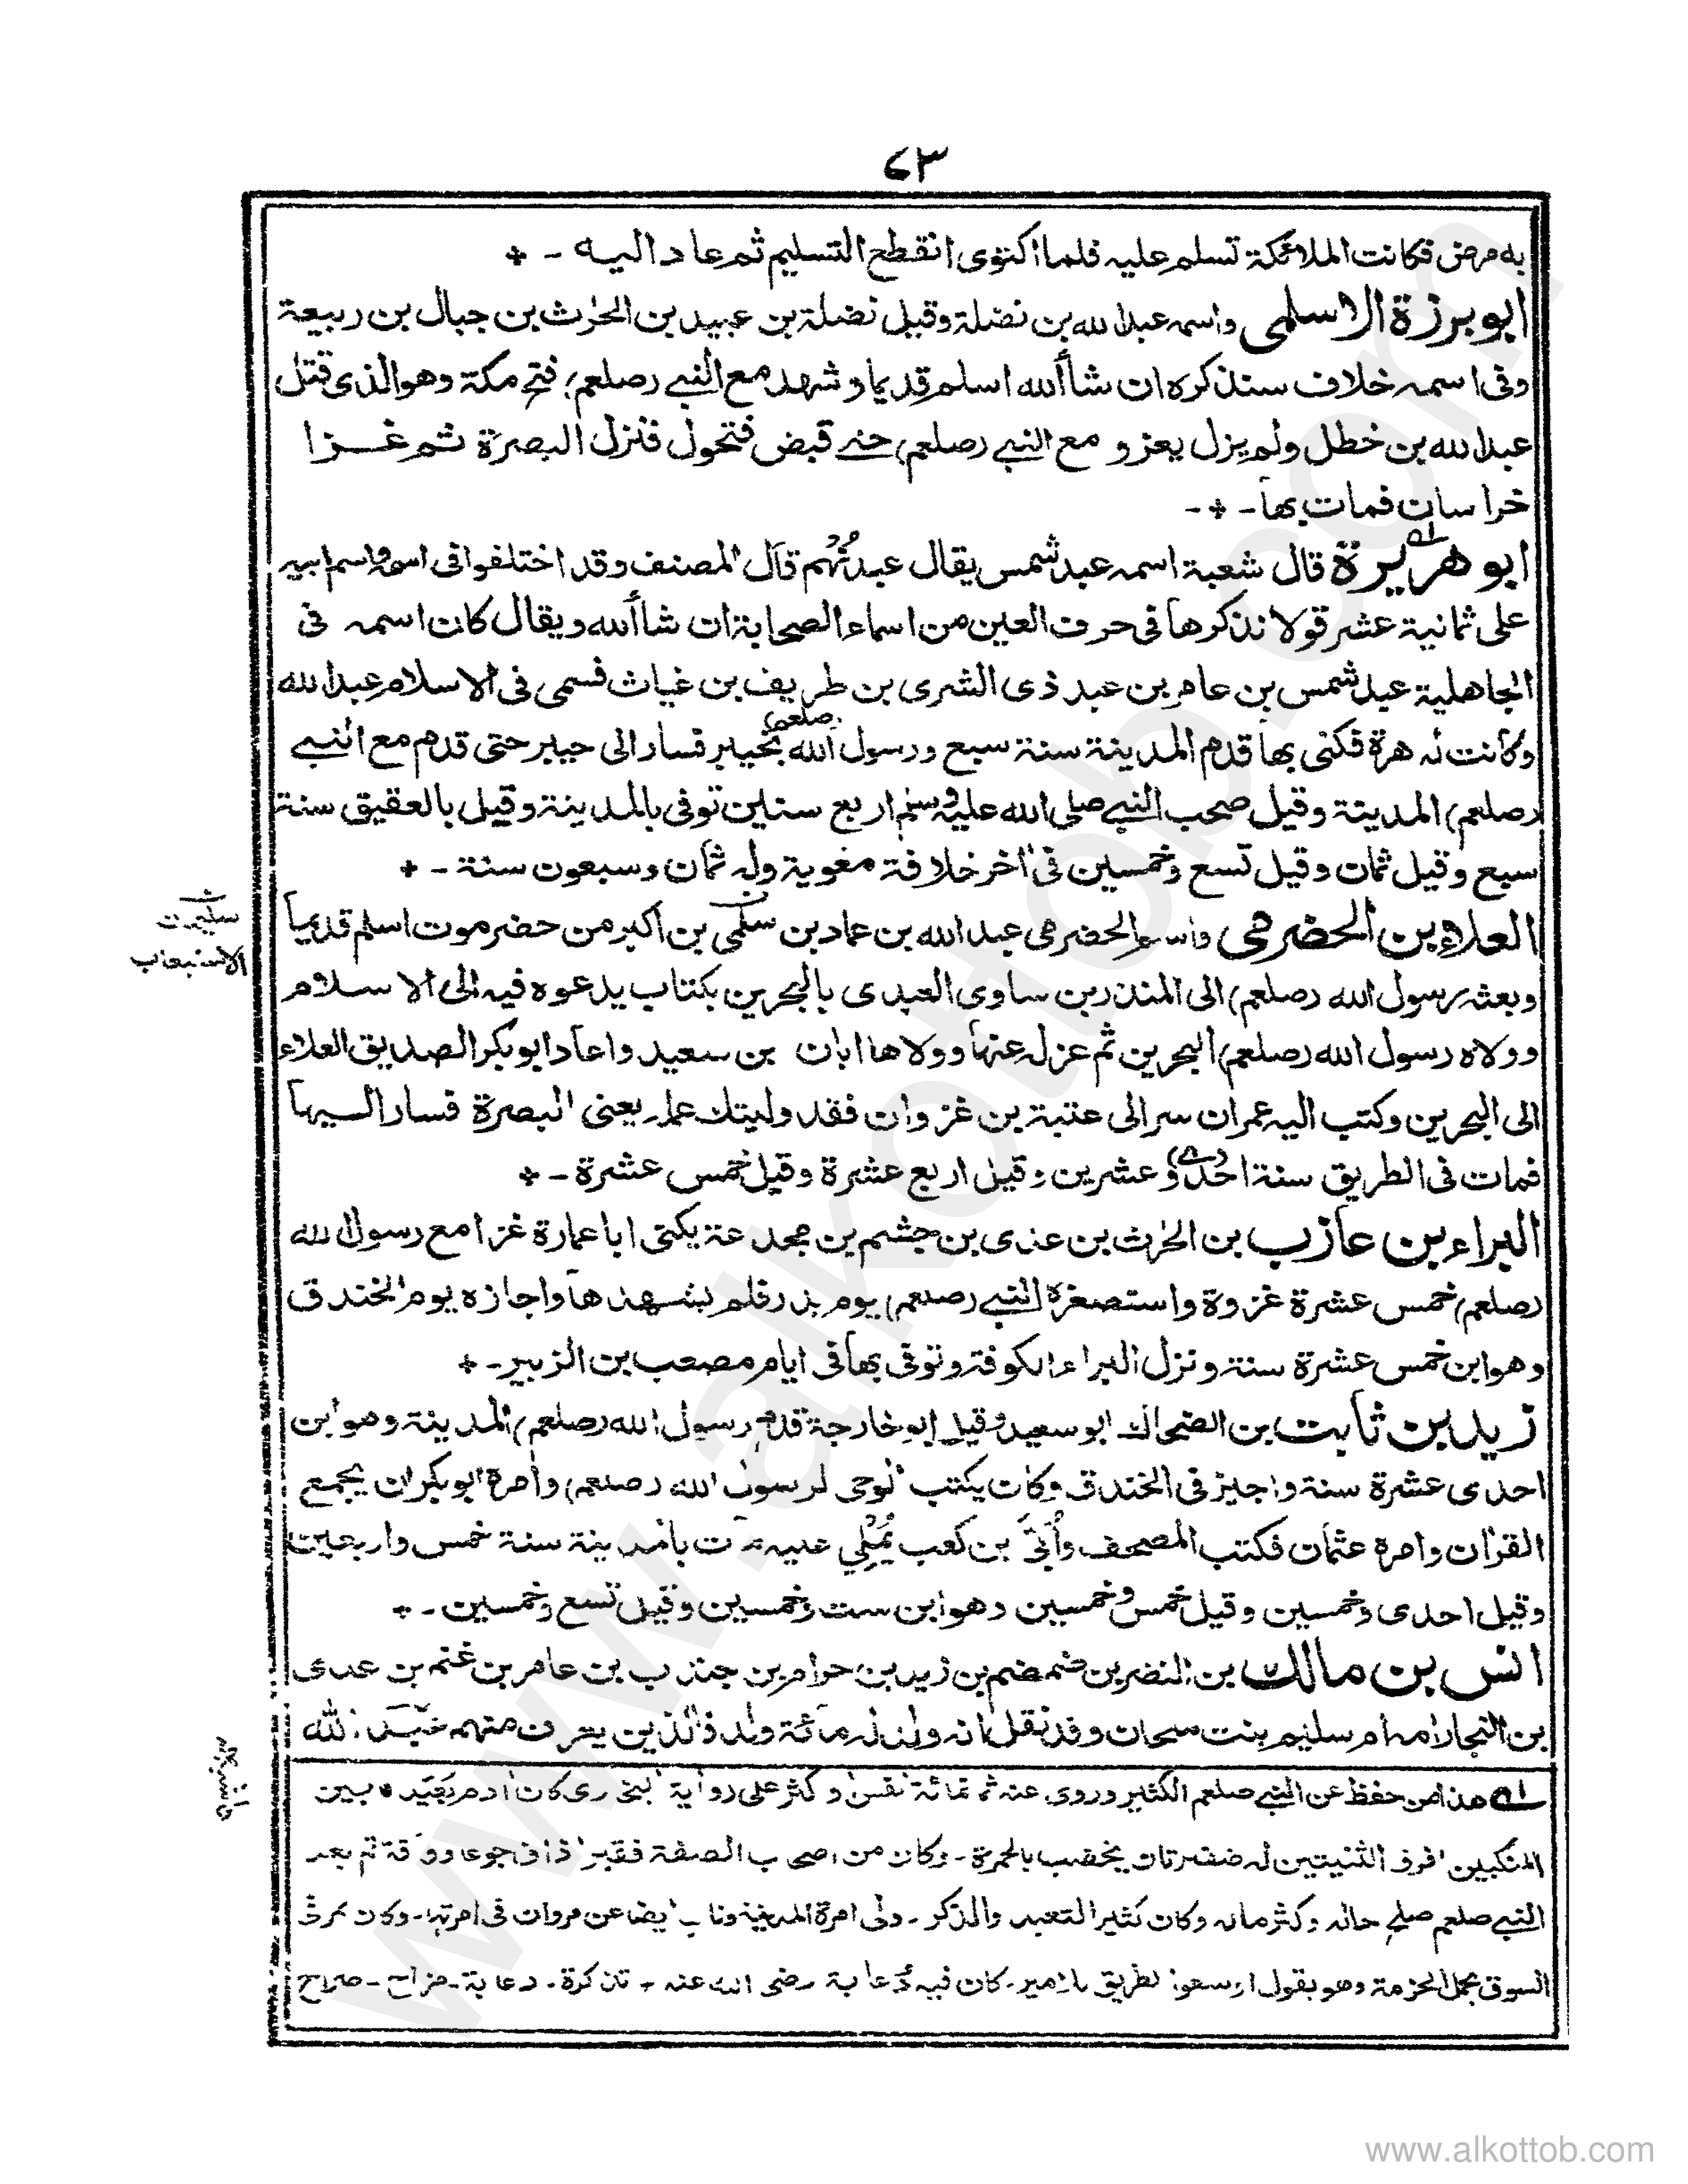 ٦٣
به مرض فكانت الملائكة تسلم عليه فلما اكتوى انقطع التسليم ثم عاد اليه - *
ابو برزة الاسلمى واسمه عبد الله بن نضلة وقيل نضلة بن عبيد بن الحرٰث بن جبال بن ربيعة
وفى اسمه خلاف سنذكره ان شاء الله اسلم قديما و شهد مع النبى (صلعم) فتح مكة وهو الذى قتل
عبد الله بن خطل ولم يزل يغزو مع النبى (صلعم) حتى قبض فتحول فنزل البصرة ثم غزا
خراسان فمات بها - * -
ابو هريرة قال شعبة اسمه عبد شمس يقال عبد نُهُم قال المصنف وقد اختلفوا فى اسمه واسم ابيه
على ثمانية عشر قولا نذكرها فى حرف العين من اسماء الصحابة ان شاء الله ويقال كان اسمه فى
الجاهلية عبد شمس بن عامر بن عبد ذى الشرى بن طريف بن غياث فسمى فى الاسلام عبد الله
وكانت له هرة فكنى بها قدم المدينة سنة سبع ورسول الله (صلعم) بخيبر فسار الى خيبر حتى قدم مع النبى
(صلعم) المدينة وقيل صحب النبى صلى الله عليه وسلم اربع سنين توفى بالمدينة وقيل بالعقيق سنة
سبع وقيل ثمان وقيل تسع وخمسين فى اٰخر خلافة مغوية وله ثمان وسبعون سنة - *
العلاء بن الحضرمى واسم الحضرمى عبد الله بن عماد بن سلمى بن اكبر من حضرموت اسلم قديما
وبعثه رسول الله (صلعم) الى المنذر بن ساوى العبدى بالبحرين بكتاب يدعوه فيه الى الاسلام
وولاه رسول الله (صلعم) البحرين ثم عزله عنها وولاها ابان بن سعيد واعاد ابو بكر الصديق العلاء
الى البحرين وكتب اليه عمر ان سر الى عتبة بن غزوان فقد وليتك عمله يعنى البصرة فسار اليها
فمات فى الطريق سنة احد(ى) وعشرين وقيل اربع عشرة وقيل خمس عشرة - *
البراء بن عازب بن الحرٰث بن عدى بن جشم بن مجدعة يكنى ابا عمارة غزا مع رسول الله
(صلعم) خمس عشرة غزوة واستصغره النبى (صلعم) يوم بدر فلم يشهدها واجازه يوم الخندق
وهو ابن خمس عشرة سنة ونزل البراء الكوفة وتوفى بها فى ايام مصعب بن الزبير - *
زيد بن ثابت بن الضحاك ابو سعيد وقيل ابو خارجة قدم رسول الله (صلعم) المدينة وهو ابن
احدى عشرة سنة واجيز فى الخندق وكان يكتب الوحى لرسول الله (صلعم) وامره ابو بكر ان يجمع
القراٰن وامره عثمان فكتب المصحف وأُبَىّ بن كعب يُمْلِي عليه مات بالمدينة سنة خمس واربعين
وقيل احدى وخمسين وقيل خمس وخمسين وهو ابن ست وخمسين وقيل تسع وخمسين - *
انس بن مالك بن النضر بن ضمضم بن زيد بن حرام بن جندب بن عامر بن غنم بن عدى
بن النجار امه ام سليم بنت ملحان وقد نقل انه ولد له مائة ولد فالذين يعرف منهم عبد الله
هذا من حفظ عن النبى صلعم الكثير وروى عنه ثمانمائة نفس و كثر على رواية البخارى كان اٰدم بعيد ما بين
المنكبين افرق الثنيتين له ضفيرتان يخضب بالحمرة - وكان من اصحاب الصفة فقيرا ذاق جوعا وفاقة ثم بعد
النبى صلعم صلح حاله وكثر ماله وكان كثير التعبد والذكر - ولى امرة المدينة وناب ايضا عن مروان فى امرتها - وكان يمر فى
السوق يحمل الحزمة وهو يقول اوسعوا الطريق للامير - كان فيه دُعابة رضى الله عنه - تذكرة - دعابة - مزاح - صراح
الاستيعاب
www.alkottob.com
www.alkottob.com